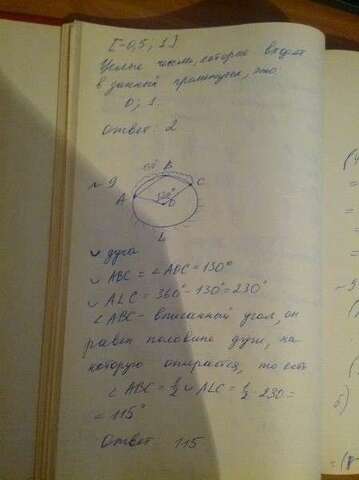 [-0,5; 1]
Целые числа, которые входят
в данный промежуток, это
0; 1.
Ответ: 2
№ 9
B
A
C
130°
O
L
◡ дуга
◡ ABC = ∠ AOC = 130°
◡ ALC = 360° - 130° = 230°
∠ ABC - вписанный угол, он
равен половине дуги, на
которую опирается, то есть
∠ ABC = 1/2 ◡ ALC = 1/2 · 230 =
= 115°
Ответ: 115
б)